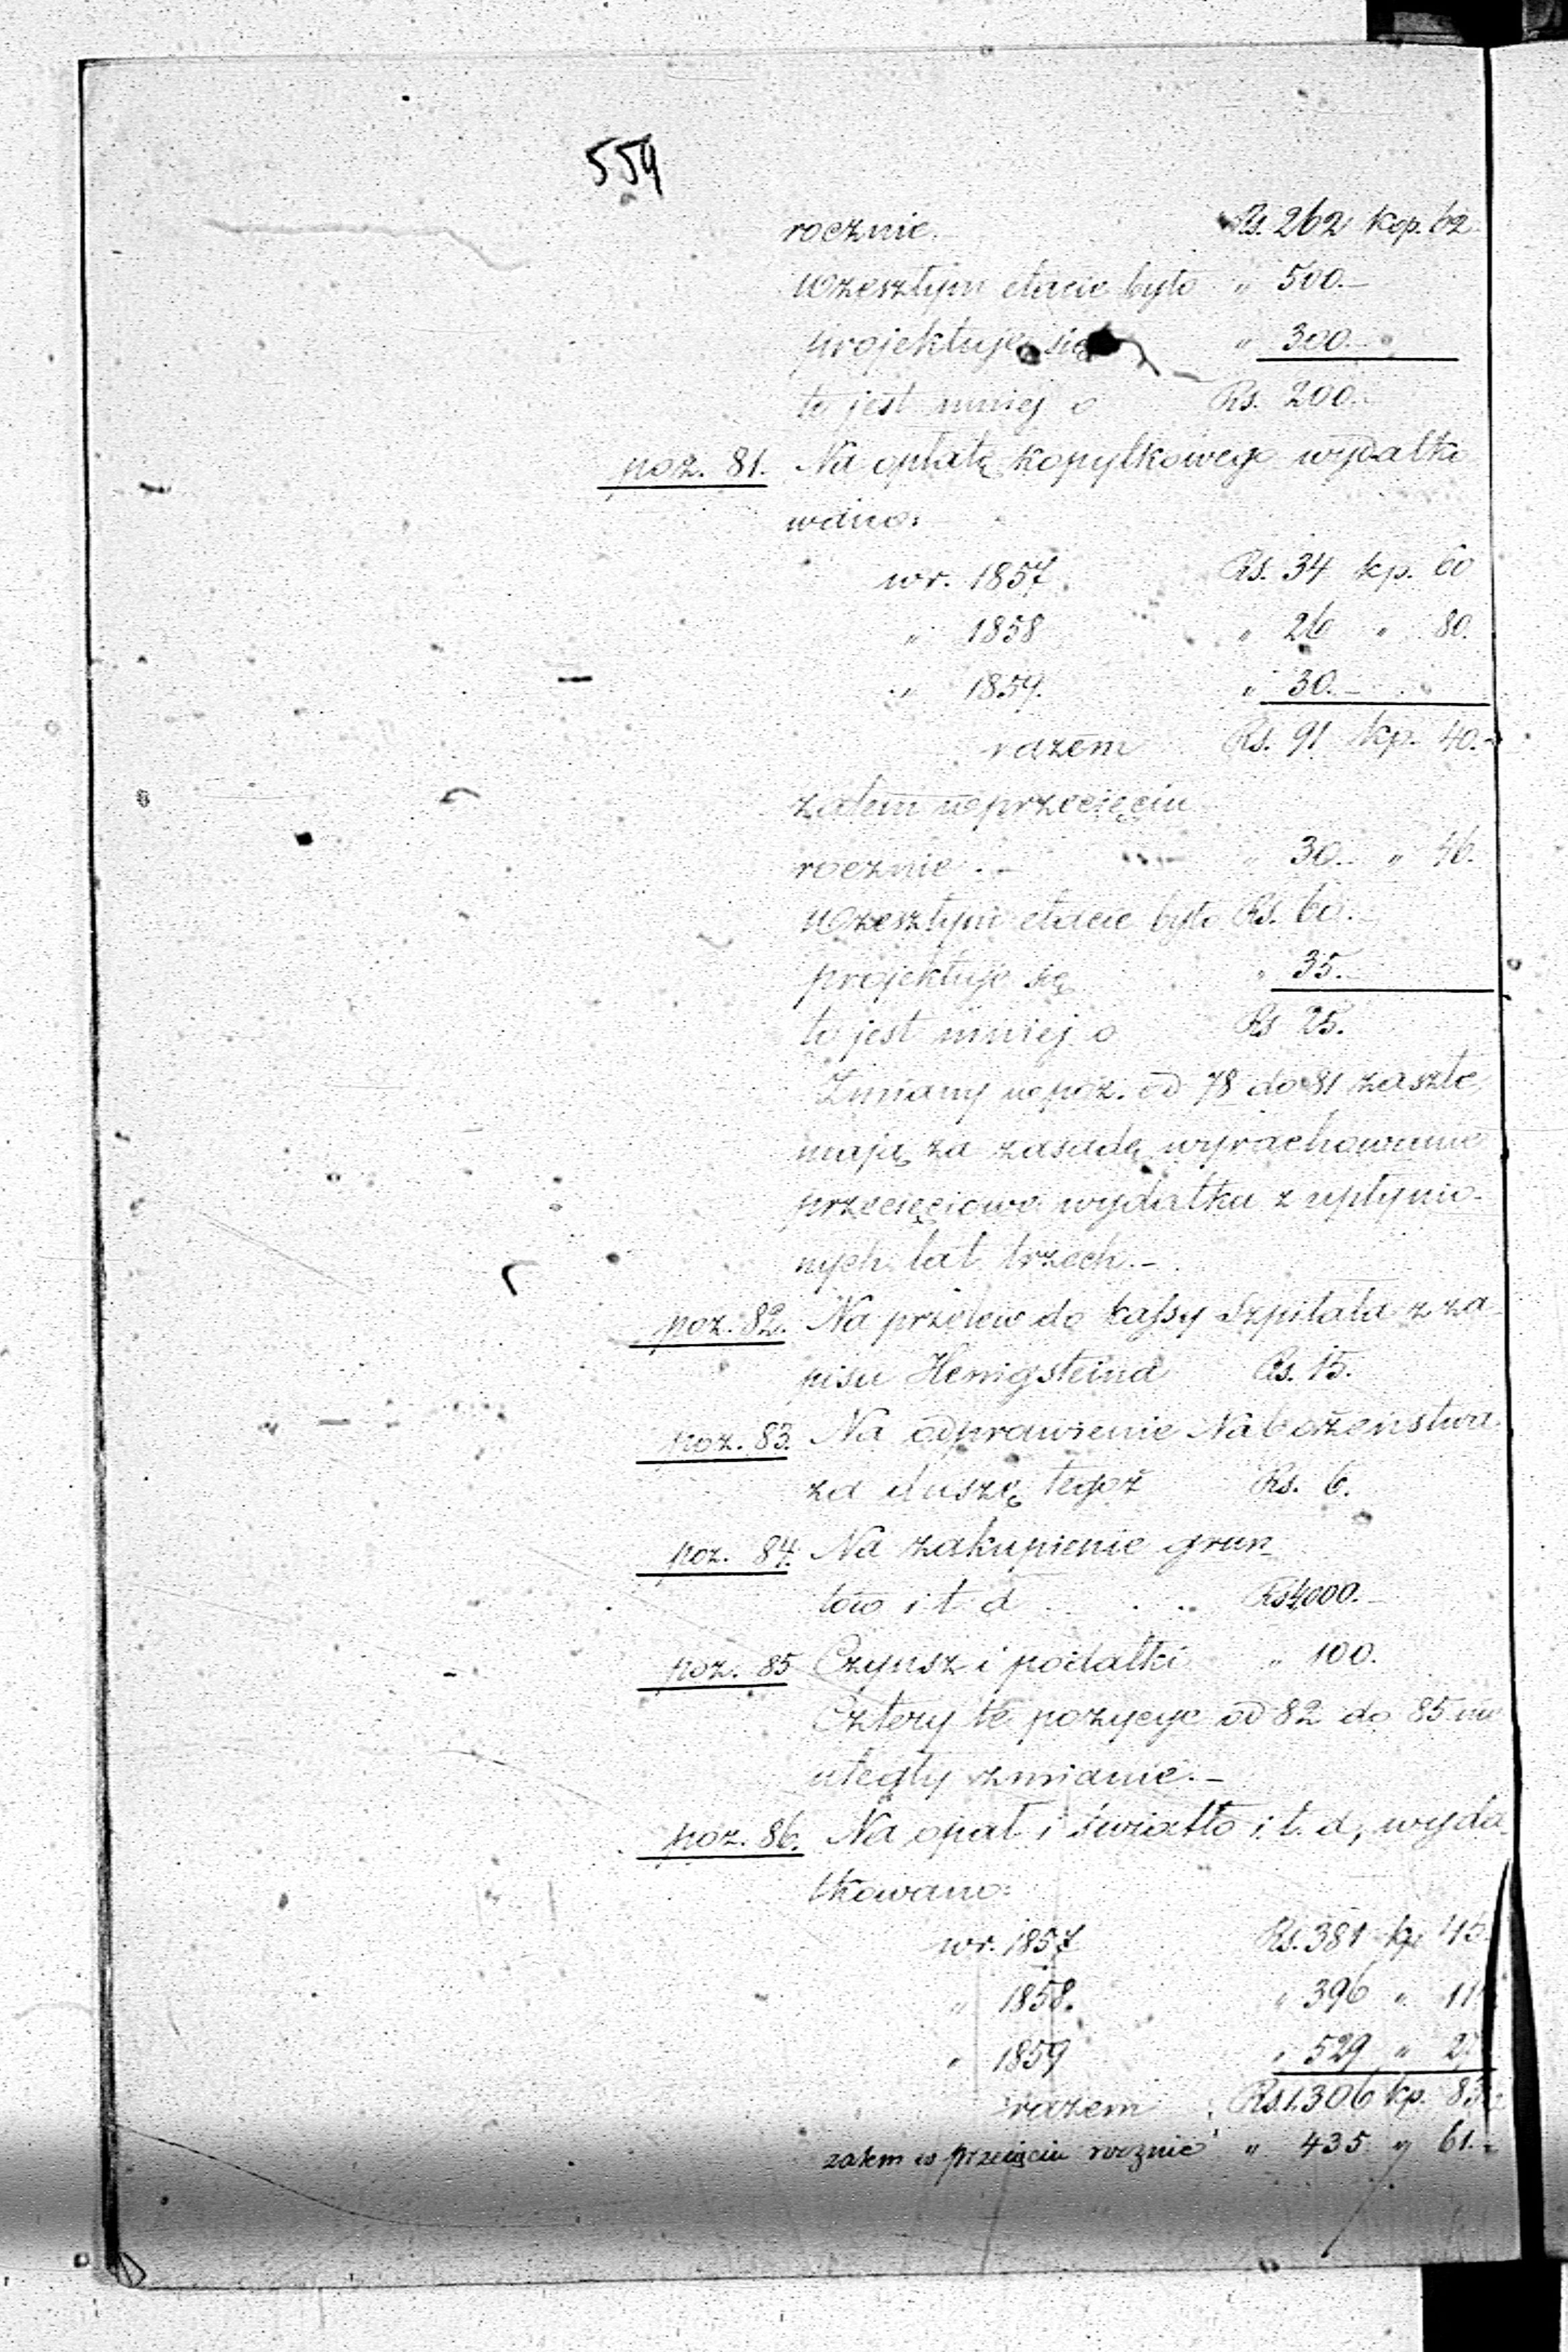 554
rocznie. Rs. 262 kop. 62
w zeszłym etacie było " 500.—
projektuje się " 300.—
to jest mniej o Rs. 200.—
poz. 81. Na opłatę kopytkowego wydatko
wano:
w r. 1857 Rs. 34 kp. 60
" 1858 " 26 " 80.
" 1859. " 30.—
razem Rs. 91 kp. 40.—
zatem w przecięciu
rocznie . — " 30.— " 46.
w zeszłym etacie było Rs. 60.—
projektuje się " 35.—
to jest mniej o Rs 25.
Zmiany w poz. od 78 do 81 zaszłe,
mają za zasadę wyrachowanie
przecięciowe wydatku z upłynio-
nych lat trzech.—
poz. 82. Na przelew do kassy Szpitala z za
pisu Henigsteina Rs. 15.
poz. 83. Na odprawienie Nabożeństwa
za duszę tegoż Rs. 6.
poz. 84. Na zakupienie grun_
tów i t. d Rs 4,000.—
poz. 85 Czynsz i podatki " 100.
Cztery te pozycye od 82 do 85 nie
uległy zmianie.—
poz. 86. Na opał i światło i. t. d, wyda_
tkowano:
w r. 1857 Rs. 381 kp 45.
" 1858. " 396 " 11
" 1859 " 529 " 27
razem Rs 1.306 kp. 83
zatem w przecięciu rocznie " 435 " 61.—